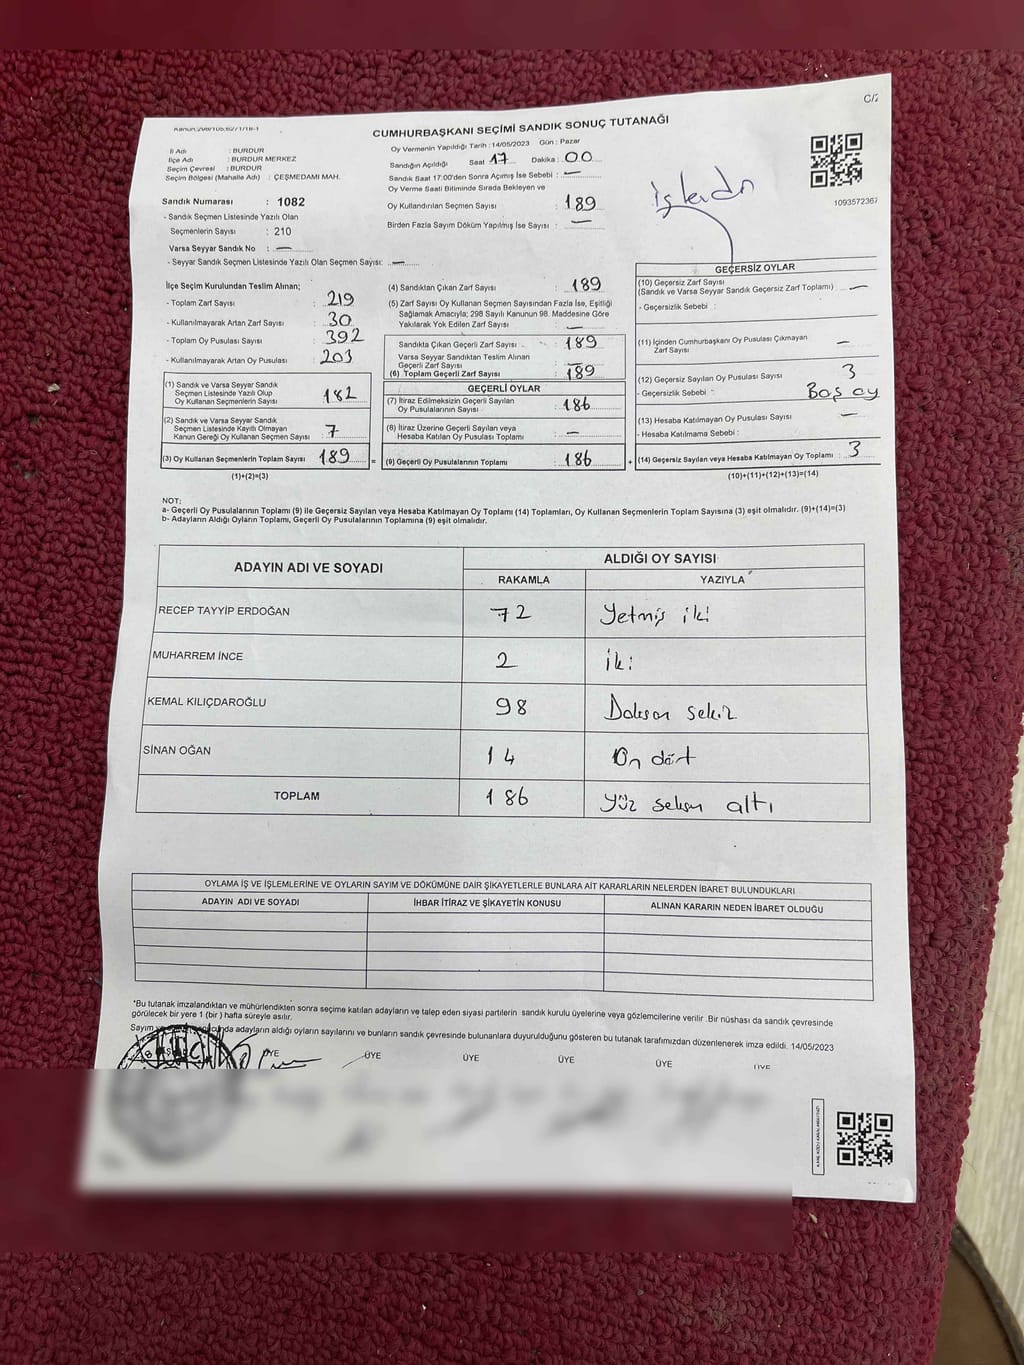 Kanun:298/105;6271/18-1
C/2
CUMHURBAŞKANI SEÇİMİ SANDIK SONUÇ TUTANAĞI
İl Adı : BURDUR
İlçe Adı : BURDUR MERKEZ
Seçim Çevresi : BURDUR
Seçim Bölgesi (Mahalle Adı) : ÇEŞMEDAMI MAH.
Sandık Numarası : 1082
- Sandık Seçmen Listesinde Yazılı Olan
Seçmenlerin Sayısı : 210
Varsa Seyyar Sandık No : —
- Seyyar Sandık Seçmen Listesinde Yazılı Olan Seçmen Sayısı: —
Oy Vermenin Yapıldığı Tarih : 14/05/2023 Gün : Pazar
Sandığın Açıldığı Saat 17 Dakika : 00
Sandık Saat 17:00'den Sonra Açımış İse Sebebi : —
Oy Verme Saati Bitiminde Sırada Bekleyen ve
Oy Kullandırılan Seçmen Sayısı : 189
Birden Fazla Sayım Döküm Yapılmış İse Sayısı : —
İşlendi
1093572367
İlçe Seçim Kurulundan Teslim Alınan;
- Toplam Zarf Sayısı : 219
- Kullanılmayarak Artan Zarf Sayısı : 30
- Toplam Oy Pusulası Sayısı : 392
- Kullanılmayarak Artan Oy Pusulası : 203
(1) Sandık ve Varsa Seyyar Sandık
Seçmen Listesinde Yazılı Olup
Oy Kullanan Seçmenlerin Sayısı : 182
(2) Sandık ve Varsa Seyyar Sandık
Seçmen Listesinde Kayıtlı Olmayan
Kanun Gereği Oy Kullanan Seçmen Sayısı : 7
(3) Oy Kullanan Seçmenlerin Toplam Sayısı : 189 =
(1)+(2)=(3)
(4) Sandıktan Çıkan Zarf Sayısı : 189
(5) Zarf Sayısı Oy Kullanan Seçmen Sayısından Fazla İse, Eşitliği
Sağlamak Amacıyla; 298 Sayılı Kanunun 98. Maddesine Göre
Yakılarak Yok Edilen Zarf Sayısı : —
Sandıkta Çıkan Geçerli Zarf Sayısı : 189
Varsa Seyyar Sandıktan Teslim Alınan
Geçerli Zarf Sayısı : —
(6) Toplam Geçerli Zarf Sayısı : 189
GEÇERLİ OYLAR
(7) İtiraz Edilmeksizin Geçerli Sayılan
Oy Pusulalarının Sayısı : 186
(8) İtiraz Üzerine Geçerli Sayılan veya
Hesaba Katılan Oy Pusulası Toplamı : —
(9) Geçerli Oy Pusulalarının Toplamı : 186 +
GEÇERSİZ OYLAR
(10) Geçersiz Zarf Sayısı
(Sandık ve Varsa Seyyar Sandık Geçersiz Zarf Toplamı) : —
- Geçersizlik Sebebi :
(11) İçinden Cumhurbaşkanı Oy Pusulası Çıkmayan
Zarf Sayısı : —
(12) Geçersiz Sayılan Oy Pusulası Sayısı : 3
- Geçersizlik Sebebi : Boş oy
(13) Hesaba Katılmayan Oy Pusulası Sayısı : —
- Hesaba Katılmama Sebebi :
(14) Geçersiz Sayılan veya Hesaba Katılmayan Oy Toplamı : 3
(10)+(11)+(12)+(13)=(14)
NOT:
a- Geçerli Oy Pusulalarının Toplamı (9) ile Geçersiz Sayılan veya Hesaba Katılmayan Oy Toplamı (14) Toplamları, Oy Kullanan Seçmenlerin Toplam Sayısına (3) eşit olmalıdır. (9)+(14)=(3)
b- Adayların Aldığı Oyların Toplamı, Geçerli Oy Pusulalarının Toplamına (9) eşit olmalıdır.
ADAYIN ADI VE SOYADI ALDIĞI OY SAYISI
RAKAMLA YAZIYLA
RECEP TAYYİP ERDOĞAN 72 Yetmiş iki
MUHARREM İNCE 2 iki
KEMAL KILIÇDAROĞLU 98 Doksan sekiz
SİNAN OĞAN 14 On dört
TOPLAM 186 yüz seksen altı
OYLAMA İŞ VE İŞLEMLERİNE VE OYLARIN SAYIM VE DÖKÜMÜNE DAİR ŞİKAYETLERLE BUNLARA AİT KARARLARIN NELERDEN İBARET BULUNDUKLARI
ADAYIN ADI VE SOYADI İHBAR İTİRAZ VE ŞİKAYETİN KONUSU ALINAN KARARIN NEDEN İBARET OLDUĞU
*Bu tutanak imzalandıktan ve mühürlendikten sonra seçime katılan adayların ve talep eden siyasi partilerin sandık kurulu üyelerine veya gözlemcilerine verilir .Bir nüshası da sandık çevresinde
görülecek bir yere 1 (bir ) hafta süreyle asılır.
Sayım adayların aldığı oyların sayılarını ve bunların sandık çevresinde bulunanlara duyurulduğunu gösteren bu tutanak tarafımızdan düzenlenerek imza edildi. 14/05/2023
ÜYE ÜYE ÜYE ÜYE ÜYE ÜYE